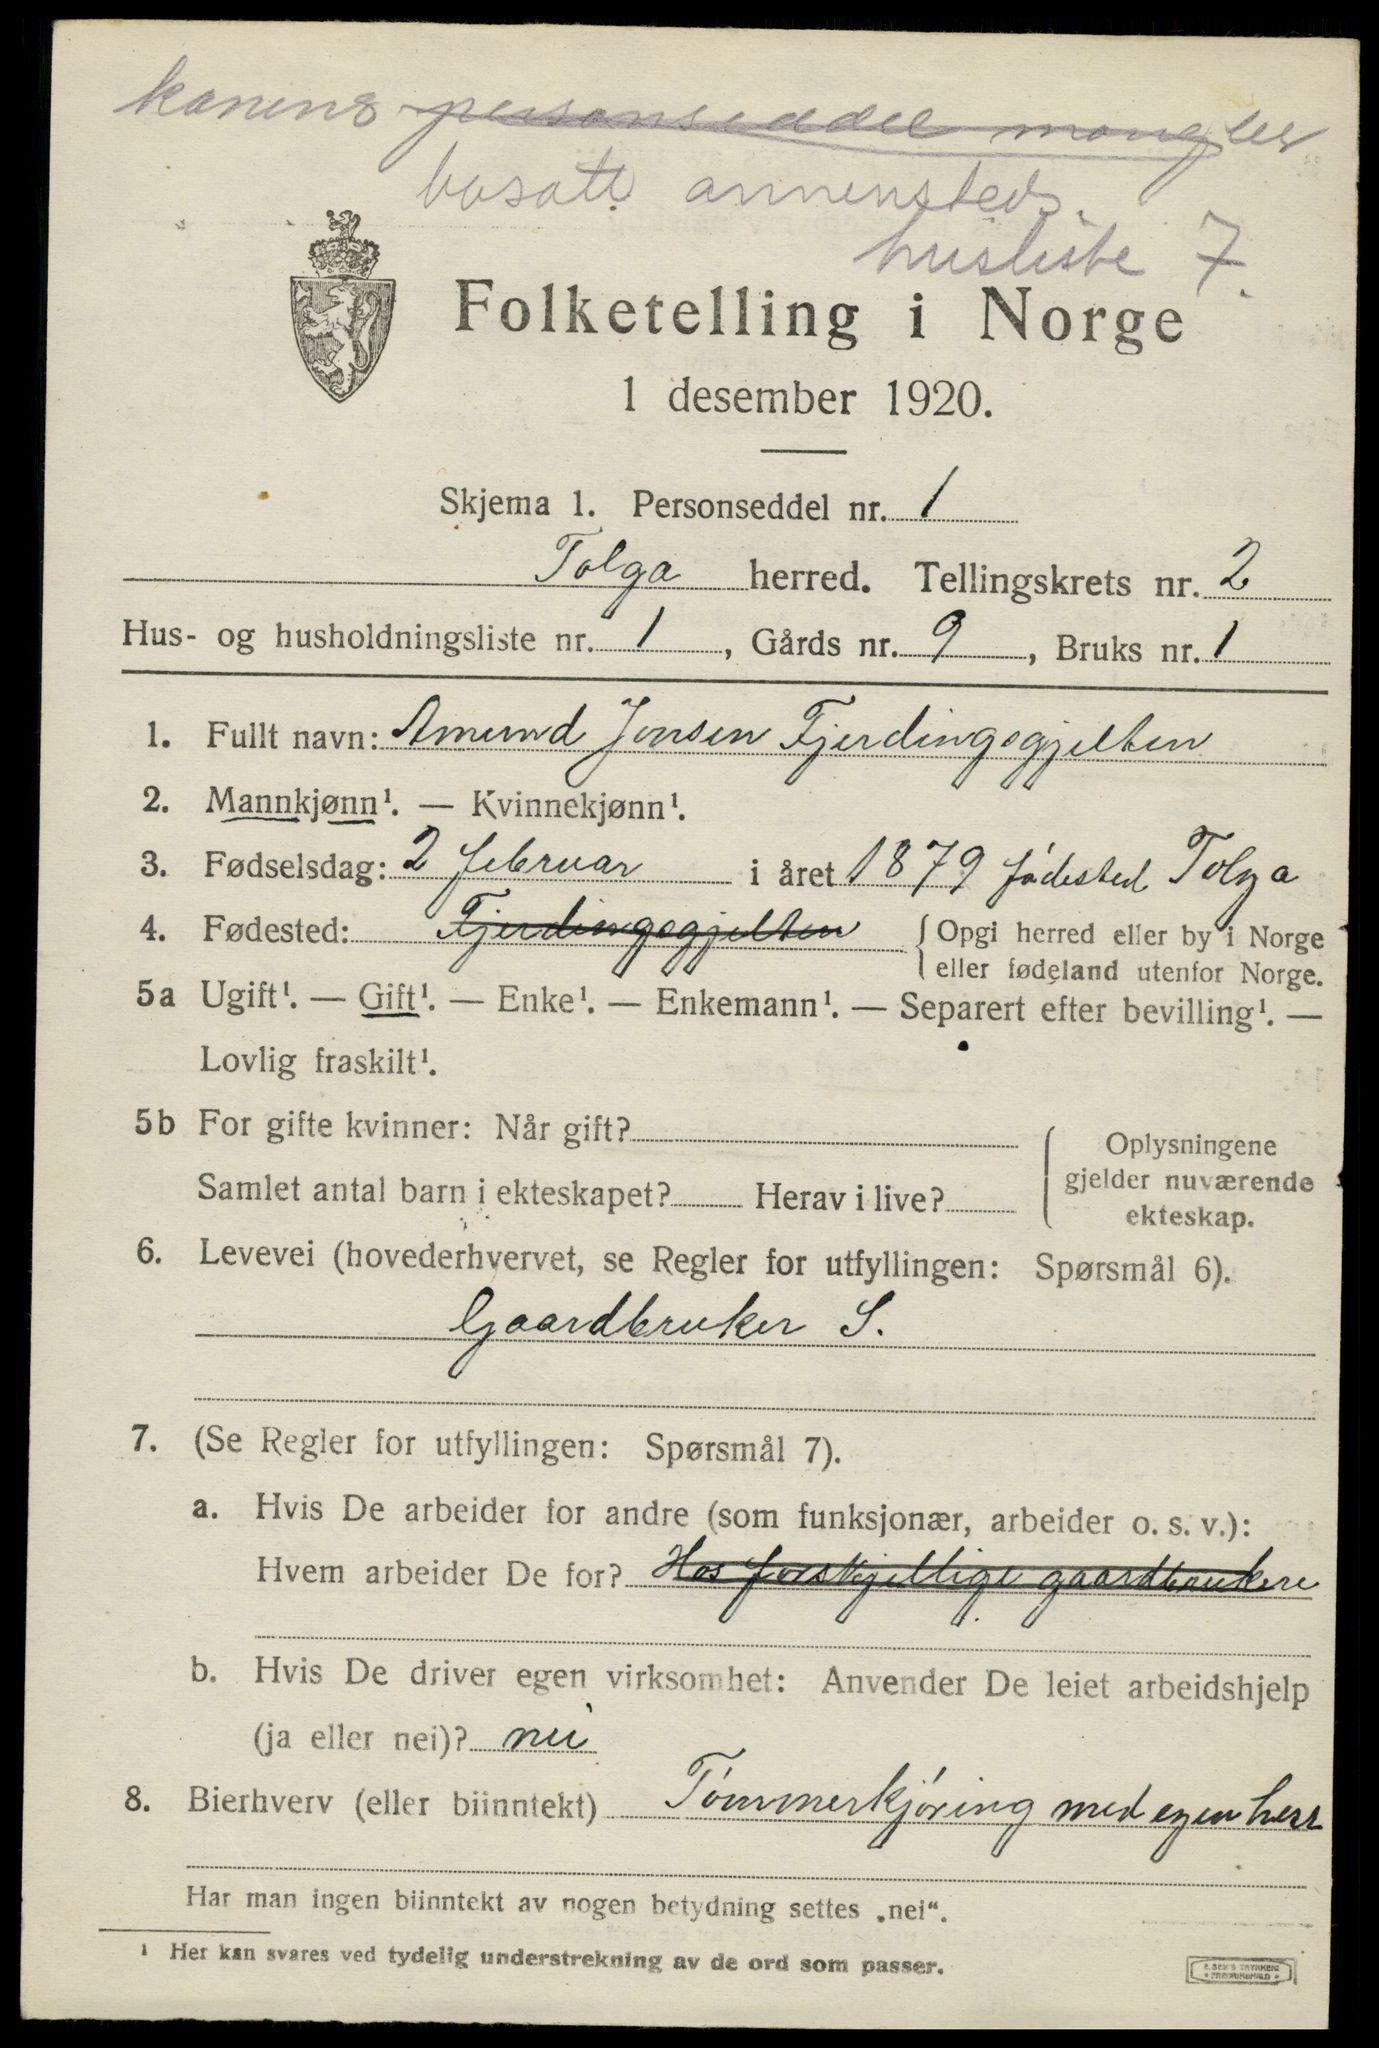 konens personseddel mangler
bosatt annensteds.
husliste 7.
Folketelling i Norge
1 desember 1920.
Skjema 1. Personseddel nr. 1
Tolga herred. Tellingskrets nr. 2
Hus- og husholdningsliste nr. 1, Gårds nr. 9, Bruks nr. 1
1. Fullt navn: Amund Jonsen Fjerdingsgjelten
2. Mannkjønn¹. — Kvinnekjønn¹.
3. Fødselsdag: 2 februar i året 1879 fødested Tolga
4. Fødested: Fjerdingsgjelten {Opgi herred eller by i Norge
eller fødeland utenfor Norge.
5a Ugift¹. — Gift¹. — Enke¹. — Enkemann¹. — Separert efter bevilling¹. —
Lovlig fraskilt¹.
5b For gifte kvinner: Når gift?
Samlet antal barn i ekteskapet? Herav i live?
Oplysningene
gjelder nuværende
ekteskap.
6. Levevei (hovederhvervet, se Regler for utfyllingen: Spørsmål 6).
Gaardbruker S.
7. (Se Regler for utfyllingen: Spørsmål 7).
a. Hvis De arbeider for andre (som funksjonær, arbeider o. s. v.):
Hvem arbeider De for? Hos forskjellige gaardbrukere
b. Hvis De driver egen virksomhet: Anvender De leiet arbeidshjelp
(ja eller nei)? nei
8. Bierhverv (eller biinntekt) Tømmerkjøring med egen hest
Har man ingen biinntekt av nogen betydning settes „nei“.
¹ Her kan svares ved tydelig understrekning av de ord som passer.